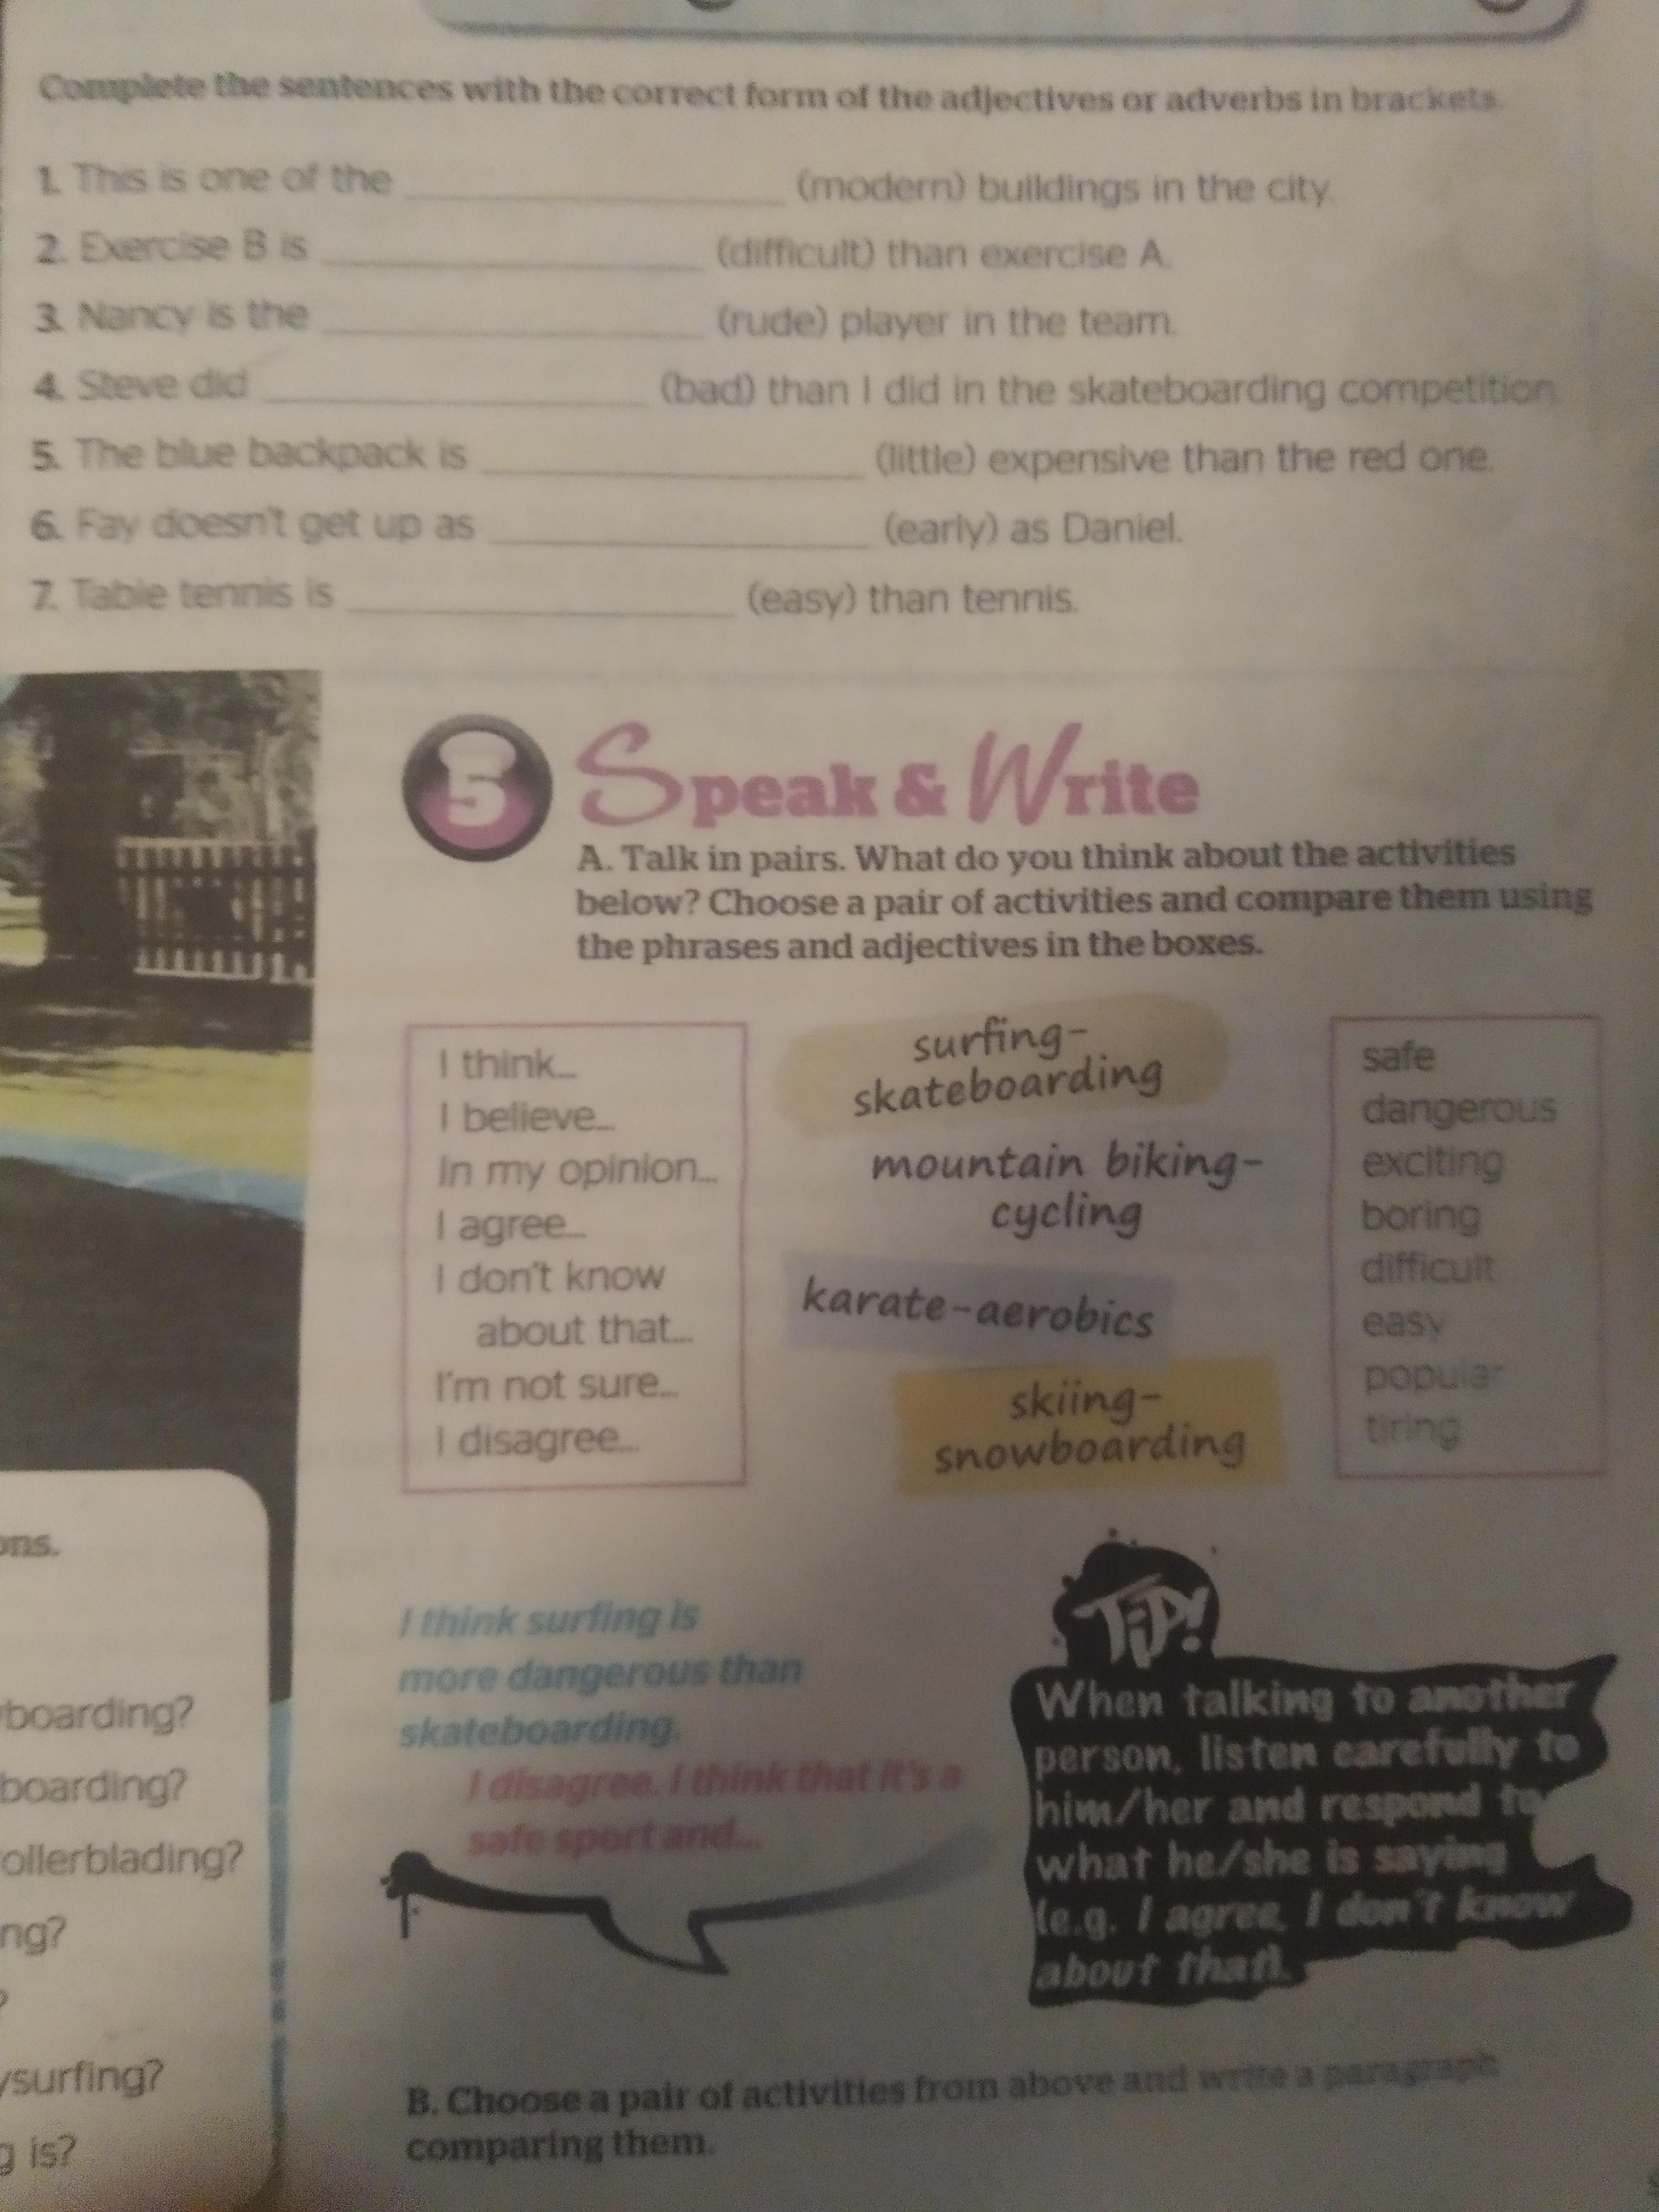 Complete the sentences with the correct form of the adjectives or adverbs in brackets.
1. This is one of the ____ (modern) buildings in the city.
2. Exercise B is ____ (difficult) than exercise A.
3. Nancy is the ____ (rude) player in the team.
4. Steve did ____ (bad) than I did in the skateboarding competition.
5. The blue backpack is ____ (little) expensive than the red one.
6. Fay doesn't get up as ____ (early) as Daniel.
7. Table tennis is ____ (easy) than tennis.
5 Speak & Write
A. Talk in pairs. What do you think about the activities
below? Choose a pair of activities and compare them using
the phrases and adjectives in the boxes.
I think...
I believe...
In my opinion...
I agree...
I don't know
about that...
I'm not sure...
I disagree...
surfing-
skateboarding
mountain biking-
cycling
karate-aerobics
skiing-
snowboarding
safe
dangerous
exciting
boring
difficult
easy
popular
tiring
I think surfing is
more dangerous than
skateboarding.
I disagree. I think that it's a
safe sport and...
Tip!
When talking to another
person, listen carefully to
him/her and respond to
what he/she is saying
(e.g. I agree, I don't know
about that).
B. Choose a pair of activities from above and write a paragraph
comparing them.
ons.
boarding?
boarding?
ollerblading?
ng?
?
surfing?
g is?